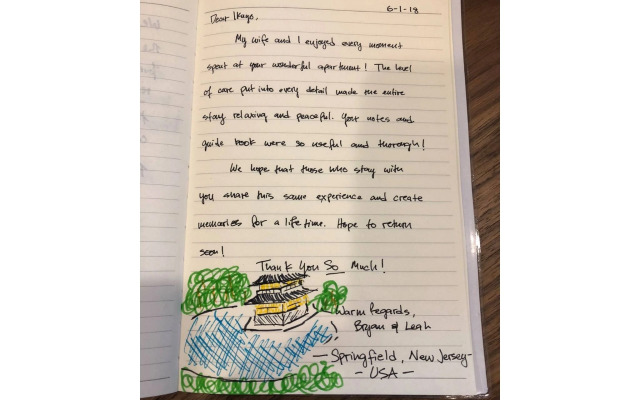 6-1-18
Dear Ikuyo,
My wife and I enjoyed every moment
spent at your wonderful apartment! The level
of care put into every detail made the entire
stay relaxing and peaceful. Your notes and
guide book were so useful and thorough!
We hope that those who stay with
you share this same experience and create
memories for a life time. Hope to return
soon!
Thank You So Much!
Warm Regards,
Bryan & Leah
— Springfield, New Jersey —
— USA —